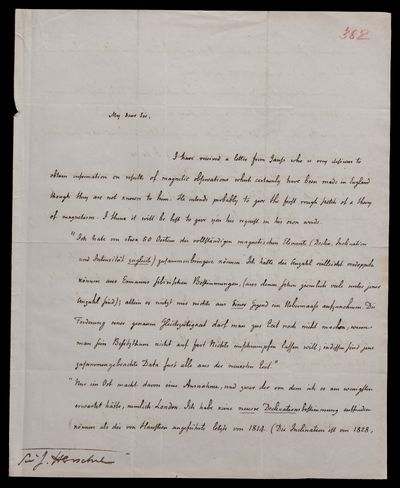 388
My dear Sir,
I have received a letter from Gauss who is very desirous to
obtain information on results of magnetic observations which certainly have been made in England
though they are not known to him. He intends probably to give the first rough sketch of a theory
of magnetism. I think it will be best to give you his request in his own words
"Ich habe von etwa 50 Oertern die vollständigen magnetischen Elemente (Declin. Inclination
und Intensität zugleich) zusammenbringen können. Ich hätte die Anzahl vielleicht verdoppeln
können aus Ermanns sibirischen Bestimmungen, (aus denen schon ziemlich viele unter jener
Anzahl sind); allein es nützt mir nichts aus einer Gegend ein Uebermaass aufzunehmen. Die
Forderung einer genauen Gleichzeitigkeit darf man zur Zeit noch nicht machen, wenn
man sein Besitzthum nicht auf fast Nichts einschrumpfen lassen will; indessen sind jene
zusammengebrachte Data fast alle aus der neuesten Zeit."
"Nur ein Ort macht davon eine Ausnahme, und zwar der von dem ich es am wenigsten
erwartet hätte, nemlich London. Ich habe keine neuere Declinationsbestimmung auffinden
können als die von Hansteen angeführte letzte von 1814. (Die Inclination ist von 1828,
Sir J. Herschel